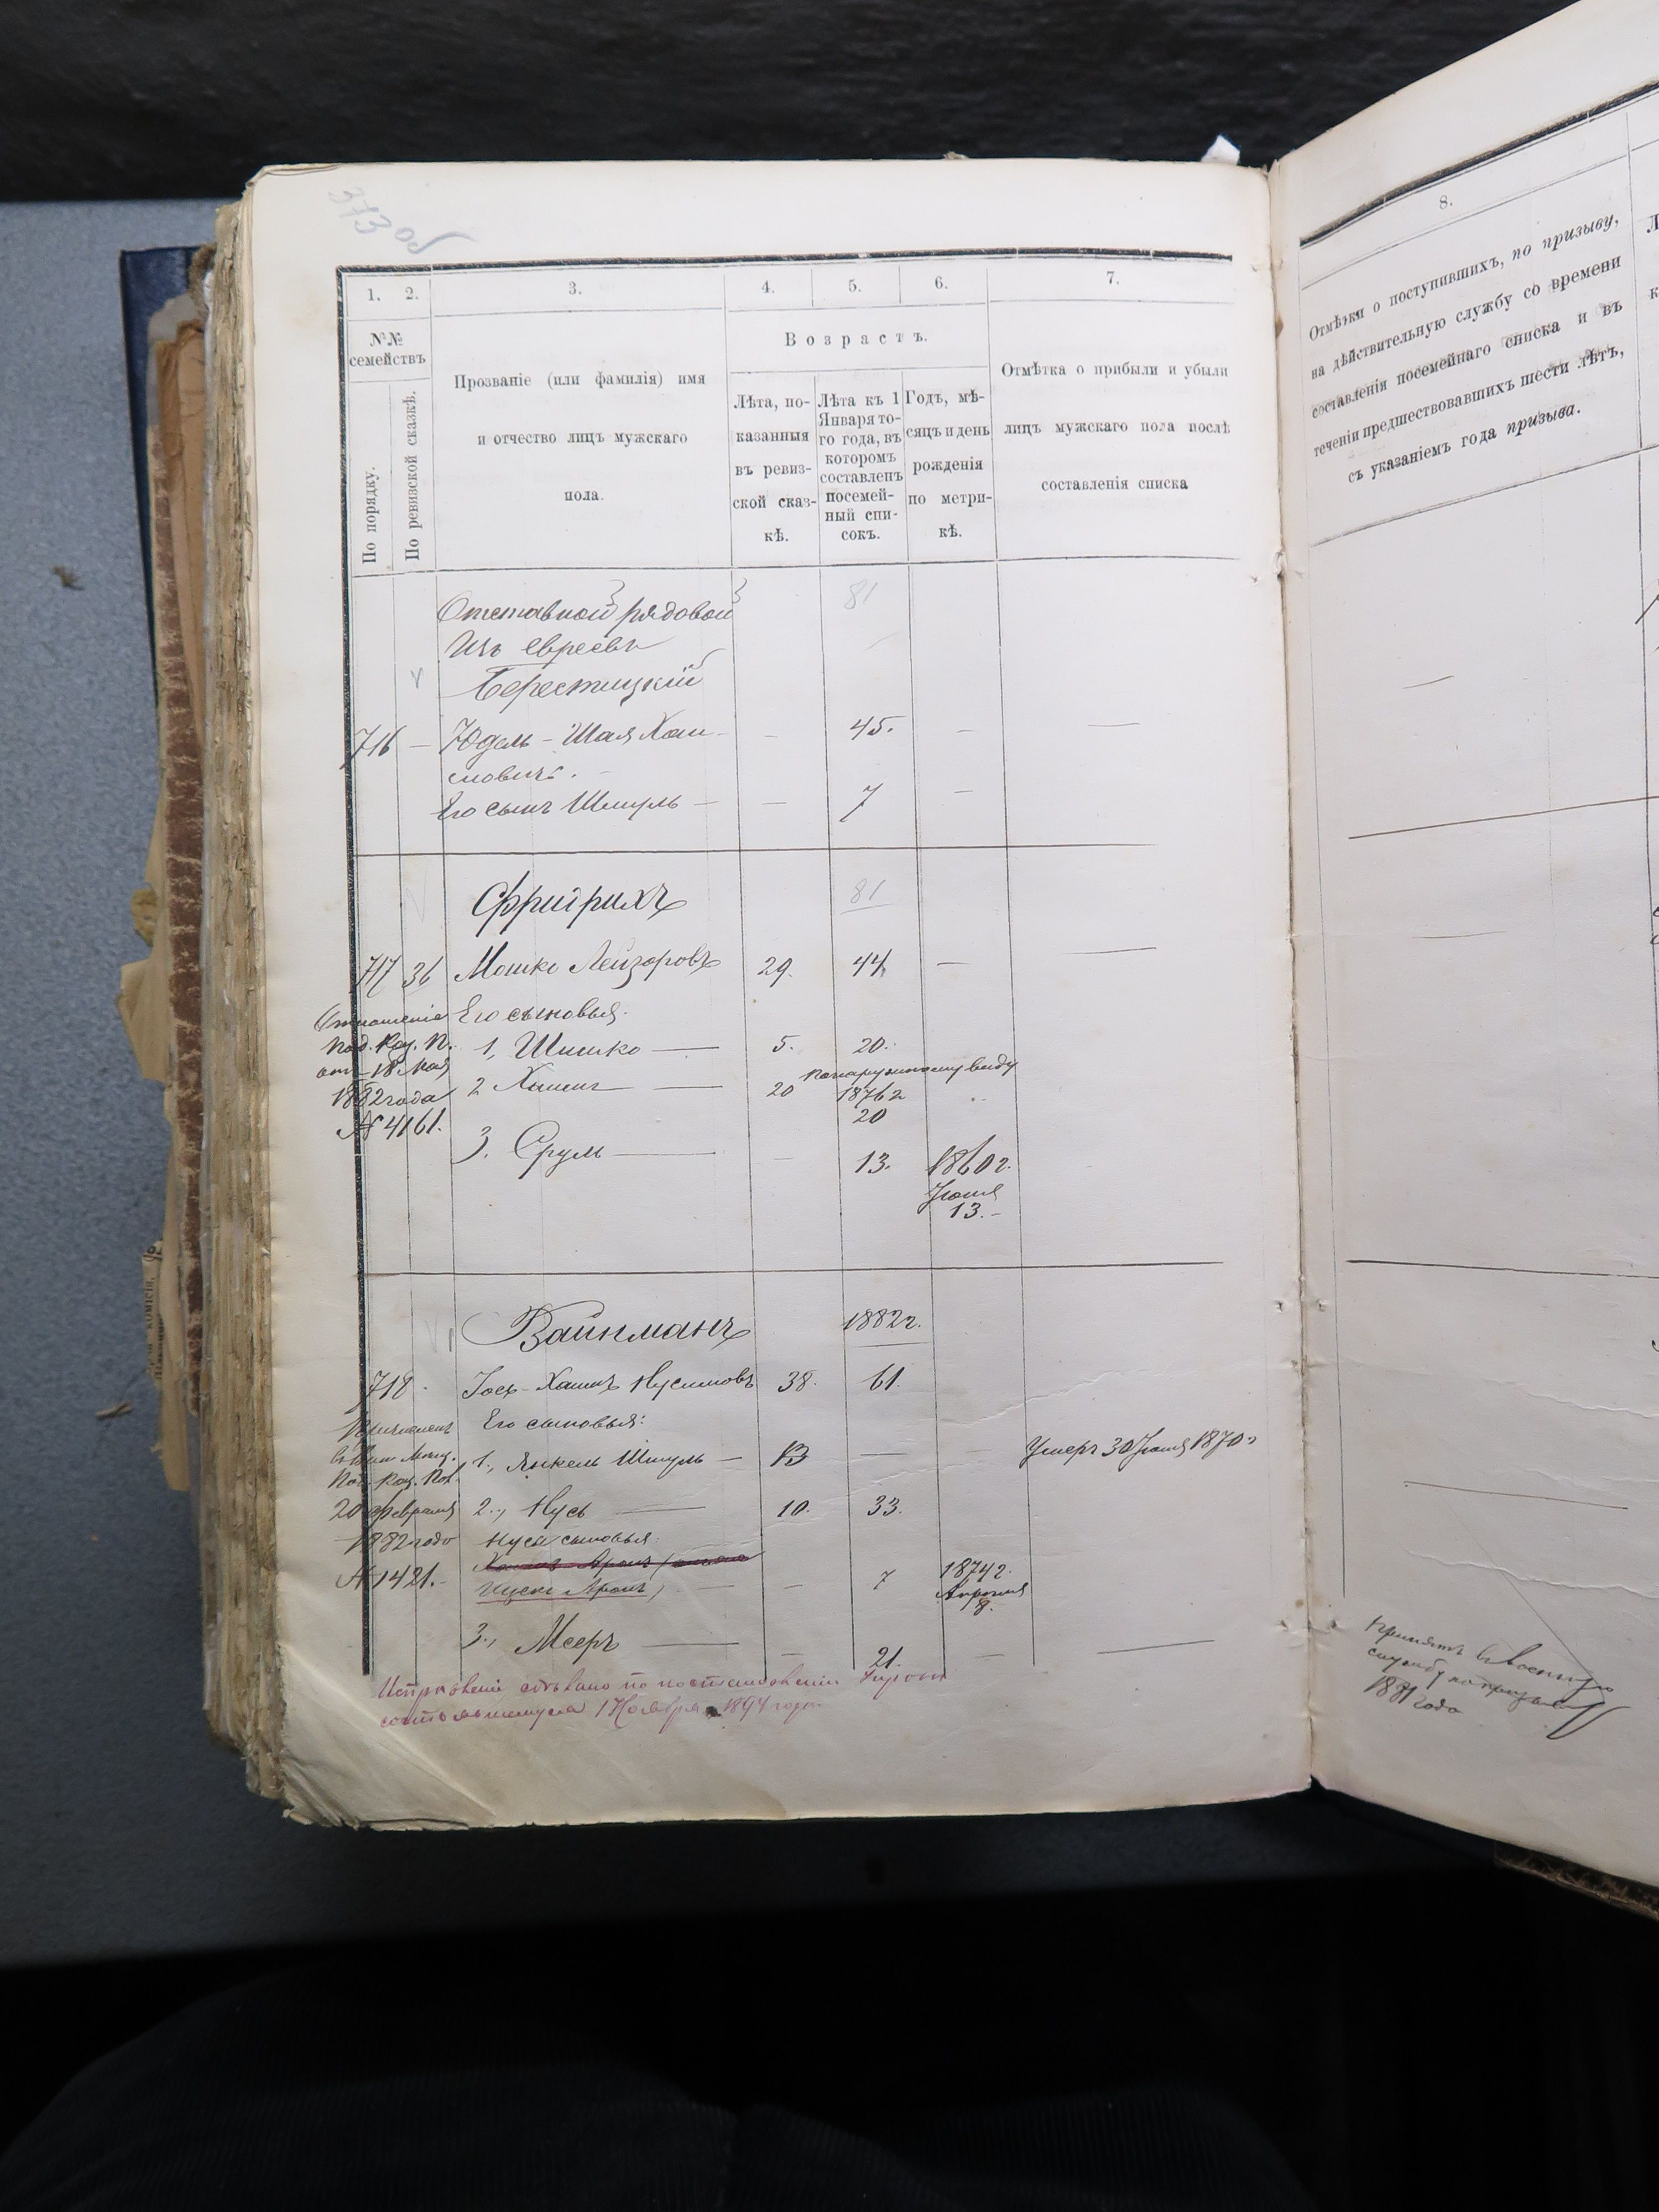 373 об
1. 2. 3. 4. 5. 6. 7.
№№ семействъ
По порядку.
По ревизской сказкѣ.
Прозваніе (или фамилія) имя
и отчество лицъ мужскаго
пола.
Возрастъ.
Лѣта, по-
казанныя
въ ревиз-
ской сказ-
кѣ.
Лѣта къ 1
Января то-
го года, въ
которомъ
составленъ
посемей-
ный спи-
сокъ.
Годъ, мѣ-
сяцъ и день
рожденія
по метри-
кѣ.
Отмѣтка о прибыли и убыли
лицъ мужскаго пола послѣ
составленія списка
Отставной рядовой 81
Изъ евреевъ
Берестицкій
716 — Юдель-Шая Хаи- — 45. — —
мовичъ.
Его сынъ Шмуль — — 7 —
Фрийрихъ 81
717 36 Мошко Лейзоровъ 29. 44 — —
Отношеніе Его сыновья.
Под. Каз. П. 1, Шимко — 5. 20.
от 18 Мая по наружному виду
1882 года 2 Хаимъ — 20 1876 г
№ 4161. 20
3. Срулъ — — 13. 1860 г.
Іюня
13. -
Вайнманъ 1882 г.
718. Іосъ-Хаимъ Нусимовъ 38. 61.
Причислен Его сыновья:
Под. Каз. Пал. 1., Янкель Шмуль — 13 — — Умеръ 30 Іюня 1870 г
20 Февраля 2., Нусь — 10. 33.
1882 года Нуся сыновья:
№ 1421. - Ицекъ Аронъ) — — 7 1874 г.
Апрѣля
8.
3., Мееръ — — 21. — —
Исправленіе сдѣлано по постановленію Управы
состоявшемуся 1 Ноября 1894 года
8.
Отмѣтки о поступившихъ, по призыву,
на дѣйствительную службу со времени
составленія посемейнаго списка и въ
теченіи предшествовавшихъ шести лѣтъ,
съ указаніемъ года призыва.
Принятъ въ военную
службу по призыву
1881 года